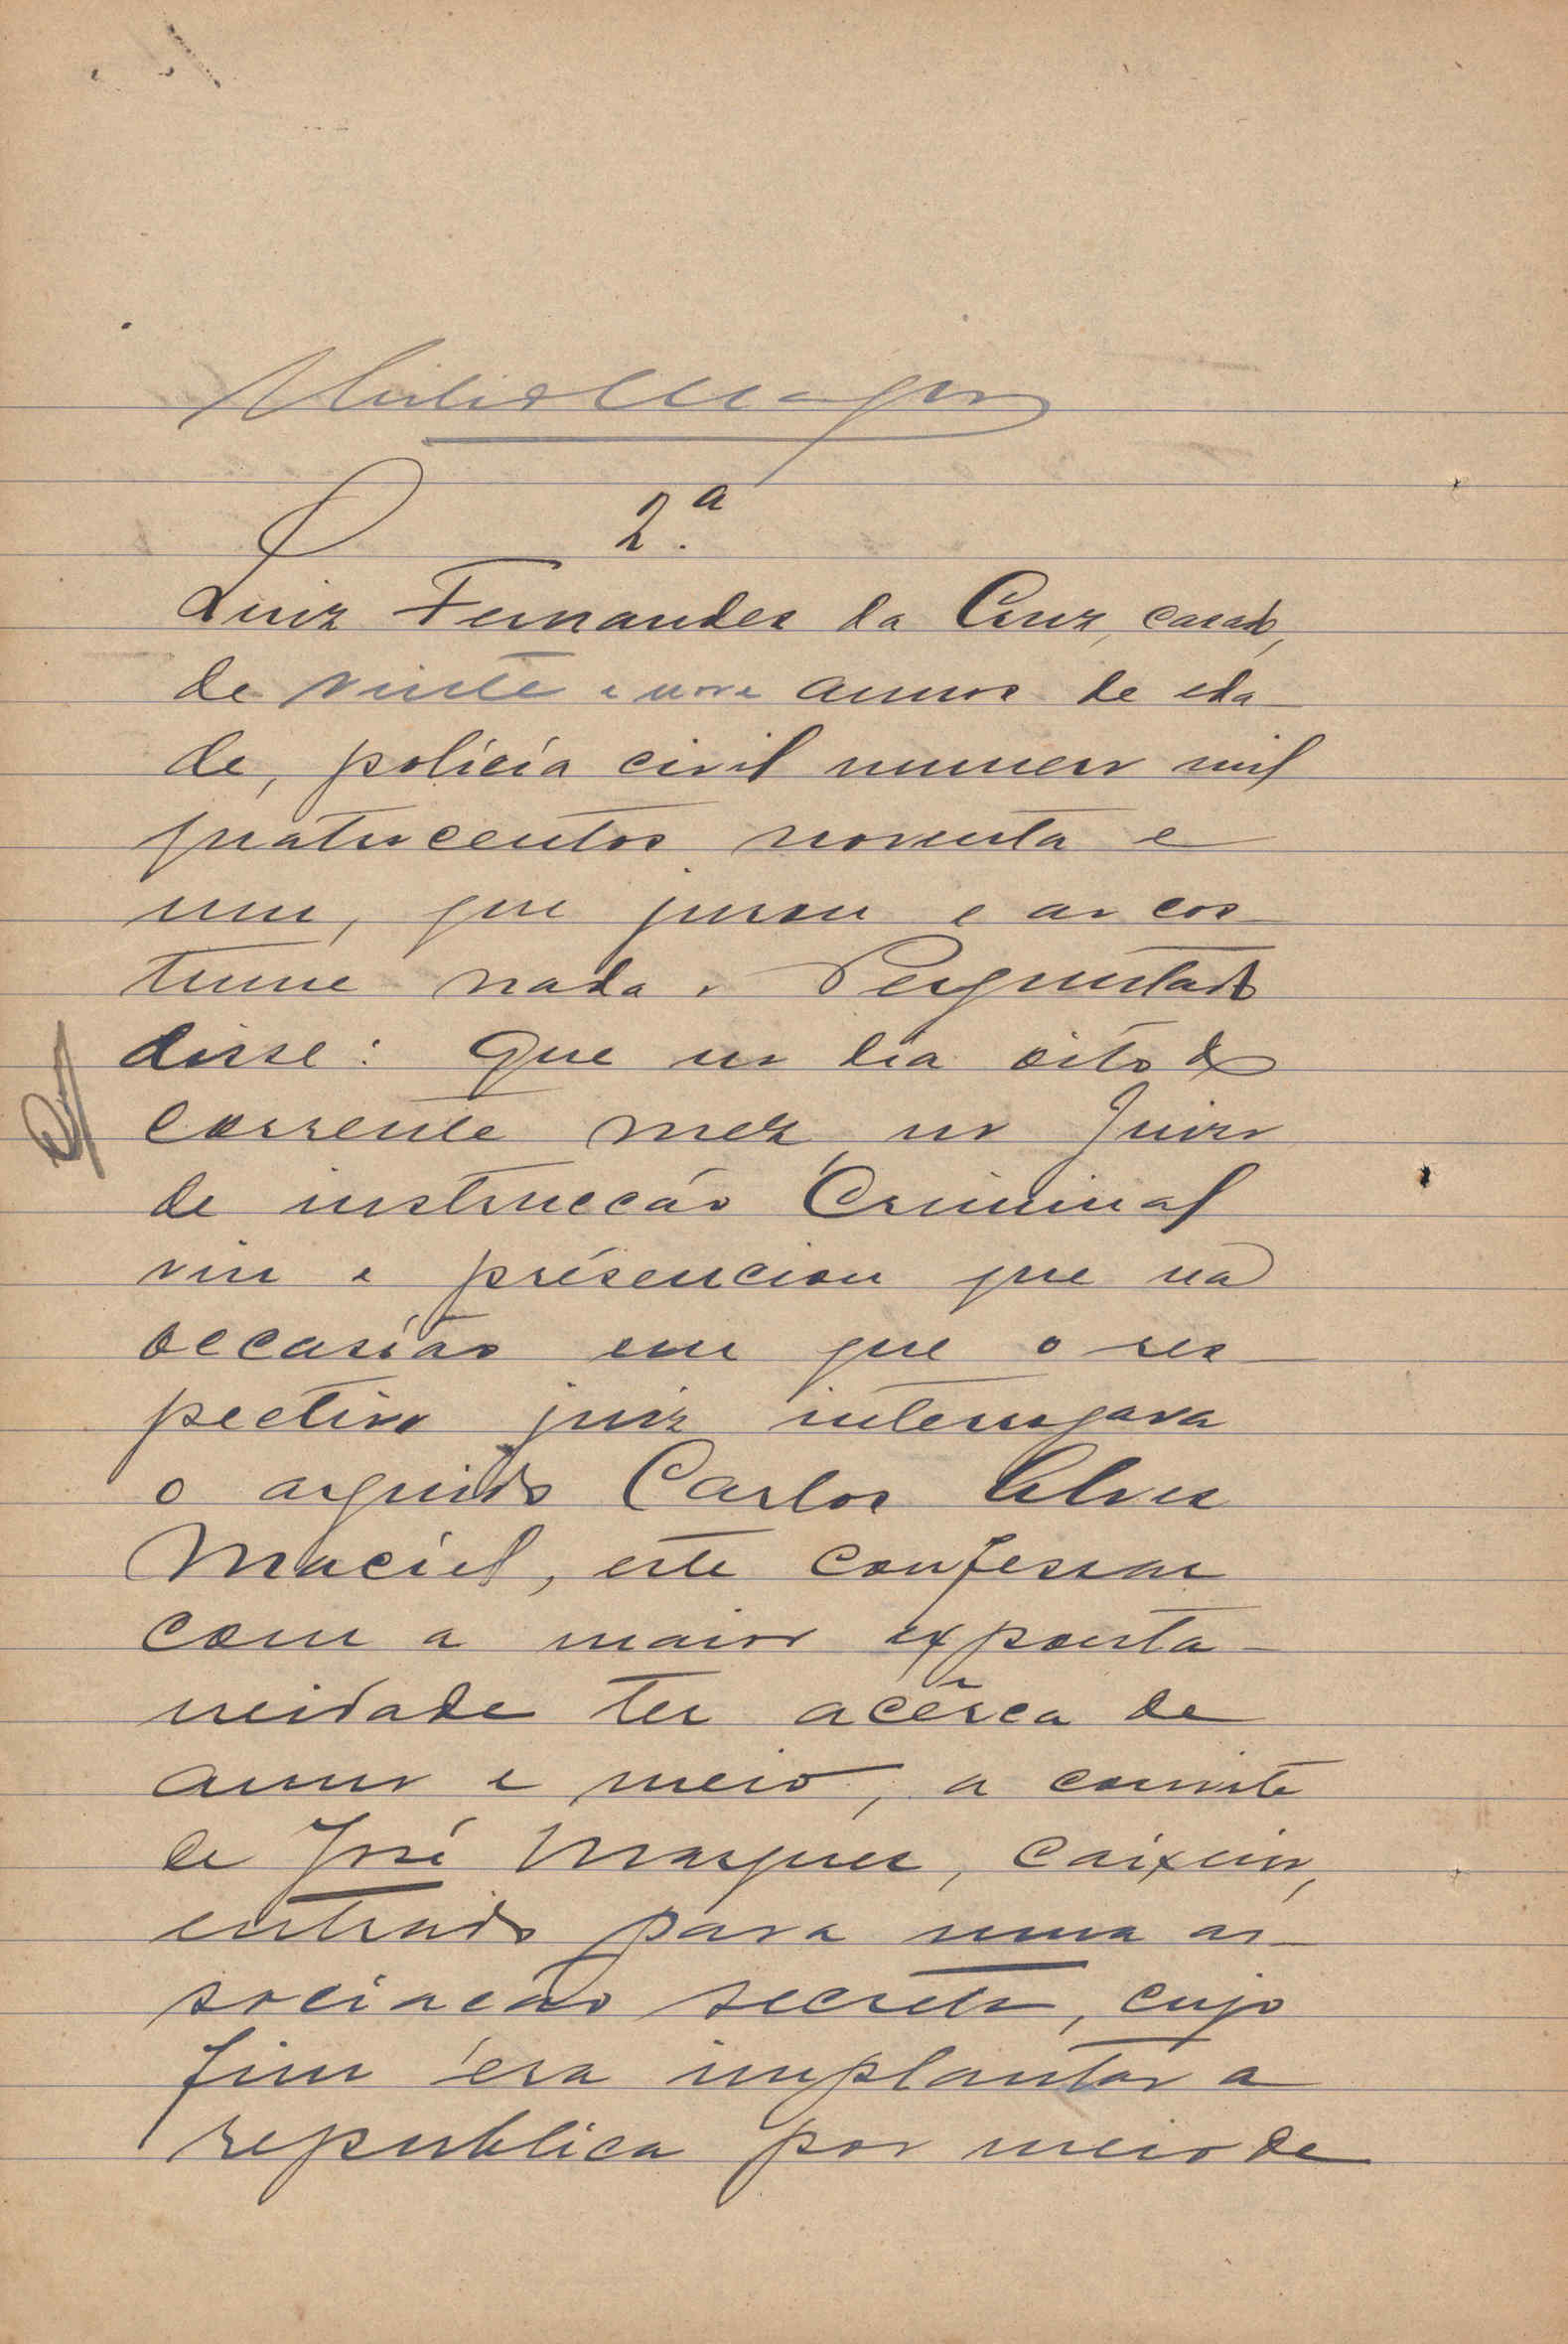 2.ª
Luiz Fernandes da Cruz, casado,
de vinte e nove annos de eda-
de, policia civil numero mil
quatrocentos noventa e
um, que jurou e ao cos-
tume nada. Perguntado
disse: Que no dia oito do
corrente mez, no Juizo
de instrucção Criminal
viu e presenciou que na
occasião em que o res-
pectivo juiz interrogava
o arguido Carlos Alves
Maciel, este confessou
com a maior exponta-
neidade ter acêrca de
anno e meio, a convite
de José Marques, caixeiro,
entrado para uma as-
sociação secreta, cujo
fim éra implantar a
republica por meio de